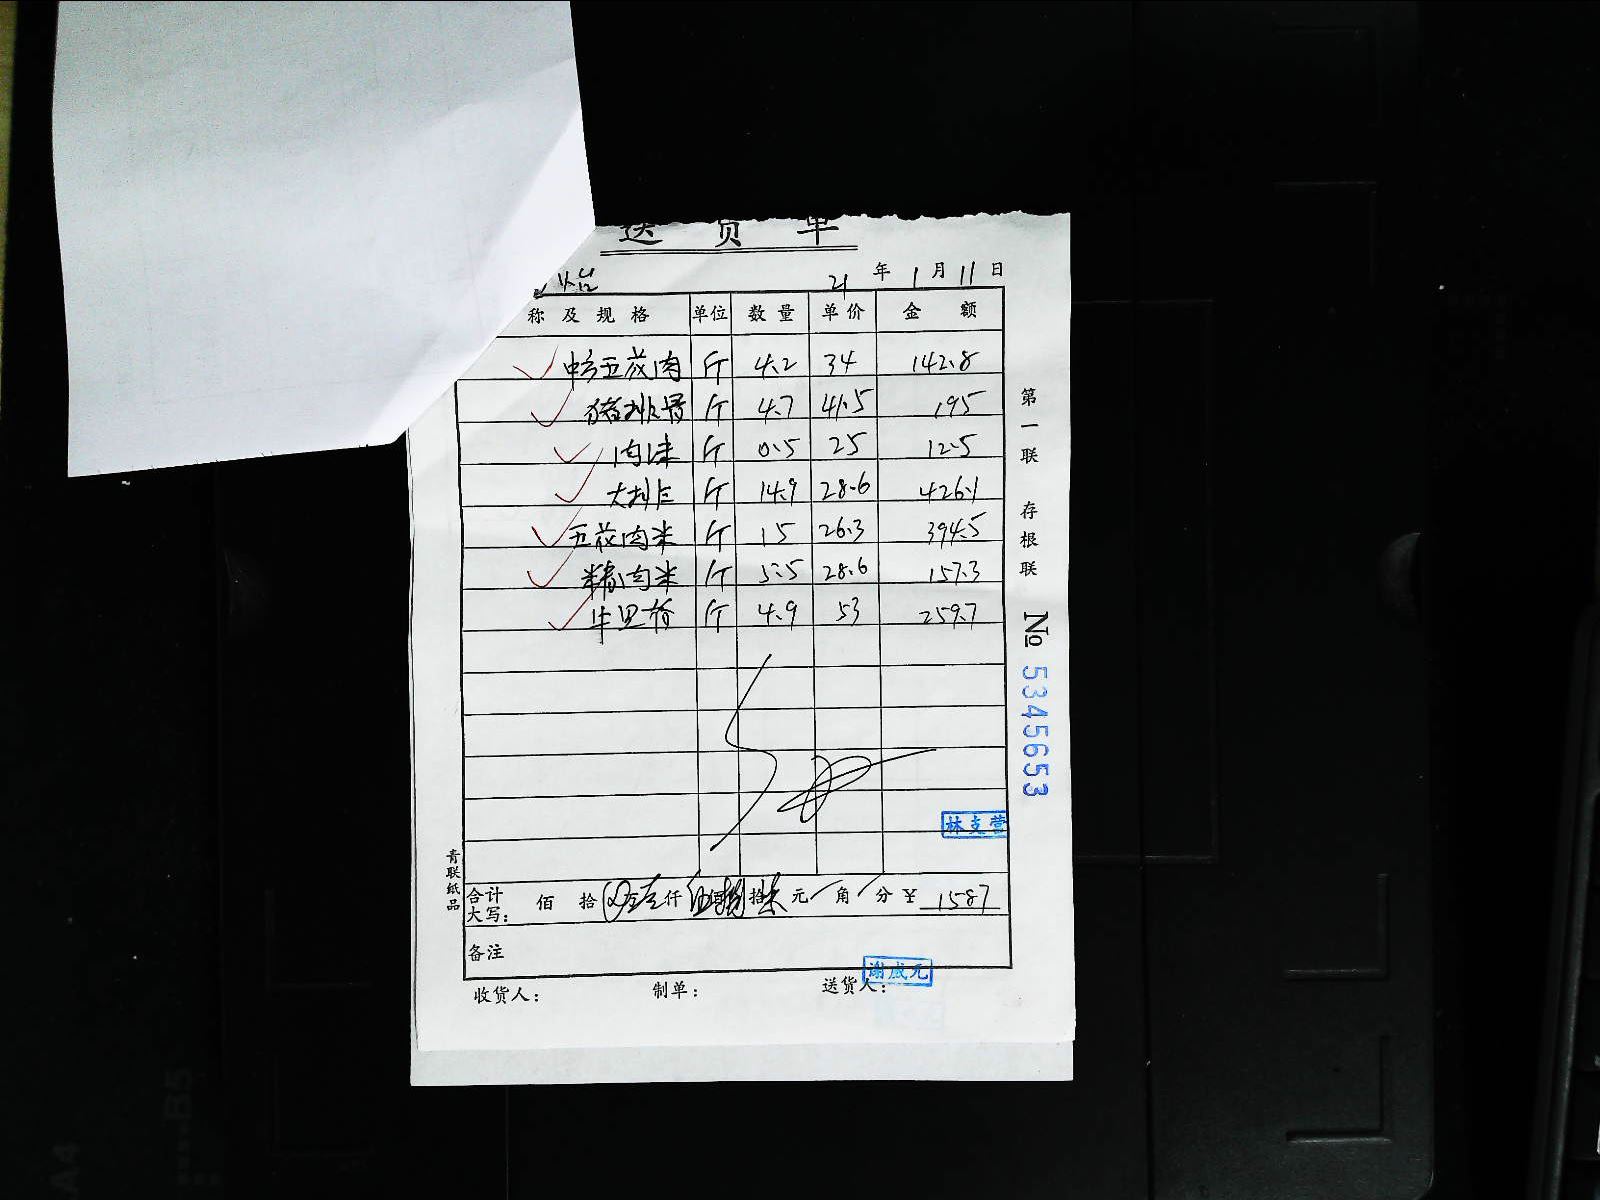 送货单
21年1月11日
称及规格 单位 数量 单价 金额
中方五花肉 斤 4.2 34 142.8
猪排骨 斤 4.7 41.5 195
肉沫 斤 0.5 25 12.5
大排 斤 14.9 28.6 426.1
五花肉米 斤 15 26.3 394.5
精肉米 斤 5.5 28.6 157.3
牛里脊 斤 4.9 53 259.7
林支营
合计
大写: 佰 拾 仟 佰 拾 元 角 分 ¥ 1587
备注
收货人: 制单: 送货人: 谢成元
第一联 存根联
No 5345653
青联纸品
A4
B5